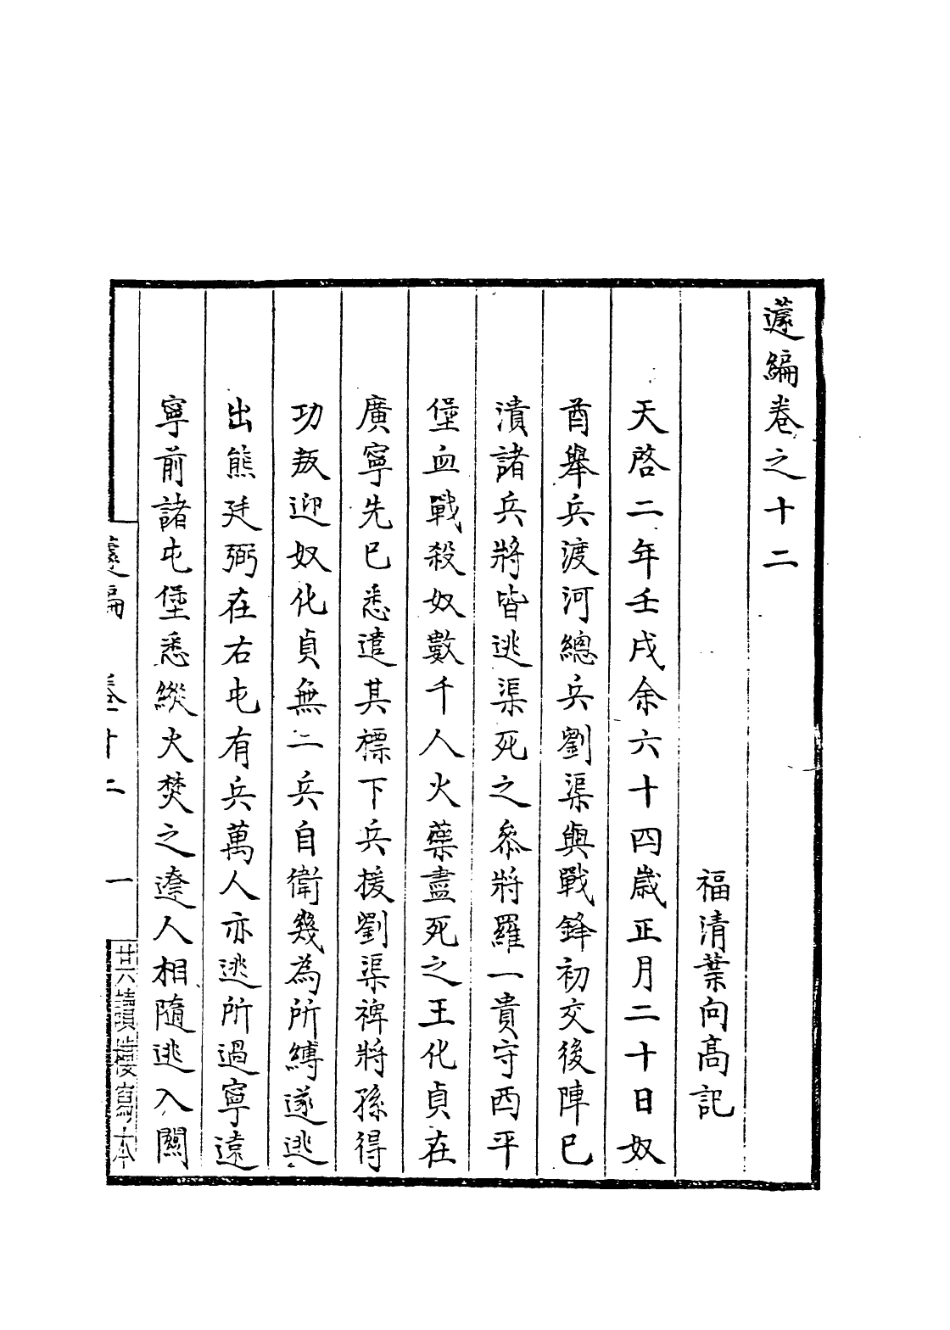 蘧編卷之十二
福清葉向高記
天啓二年壬戌余六十四歲正月二十日奴
酋舉兵渡河總兵劉渠與戰鋒初交後陣已
潰諸兵將皆逃渠死之叅將羅一貴守西平
堡血戰殺奴數千人火藥盡死之王化貞在
廣寧先已悉遣其標下兵援劉渠裨將孫得
功叛迎奴化貞無一兵自衛幾為所縛遂逃
出熊廷弼在右屯有兵萬人亦逃所過寧遠
寧前諸屯堡悉縱火焚之遼人相隨逃入關
蘧編 卷十二 一